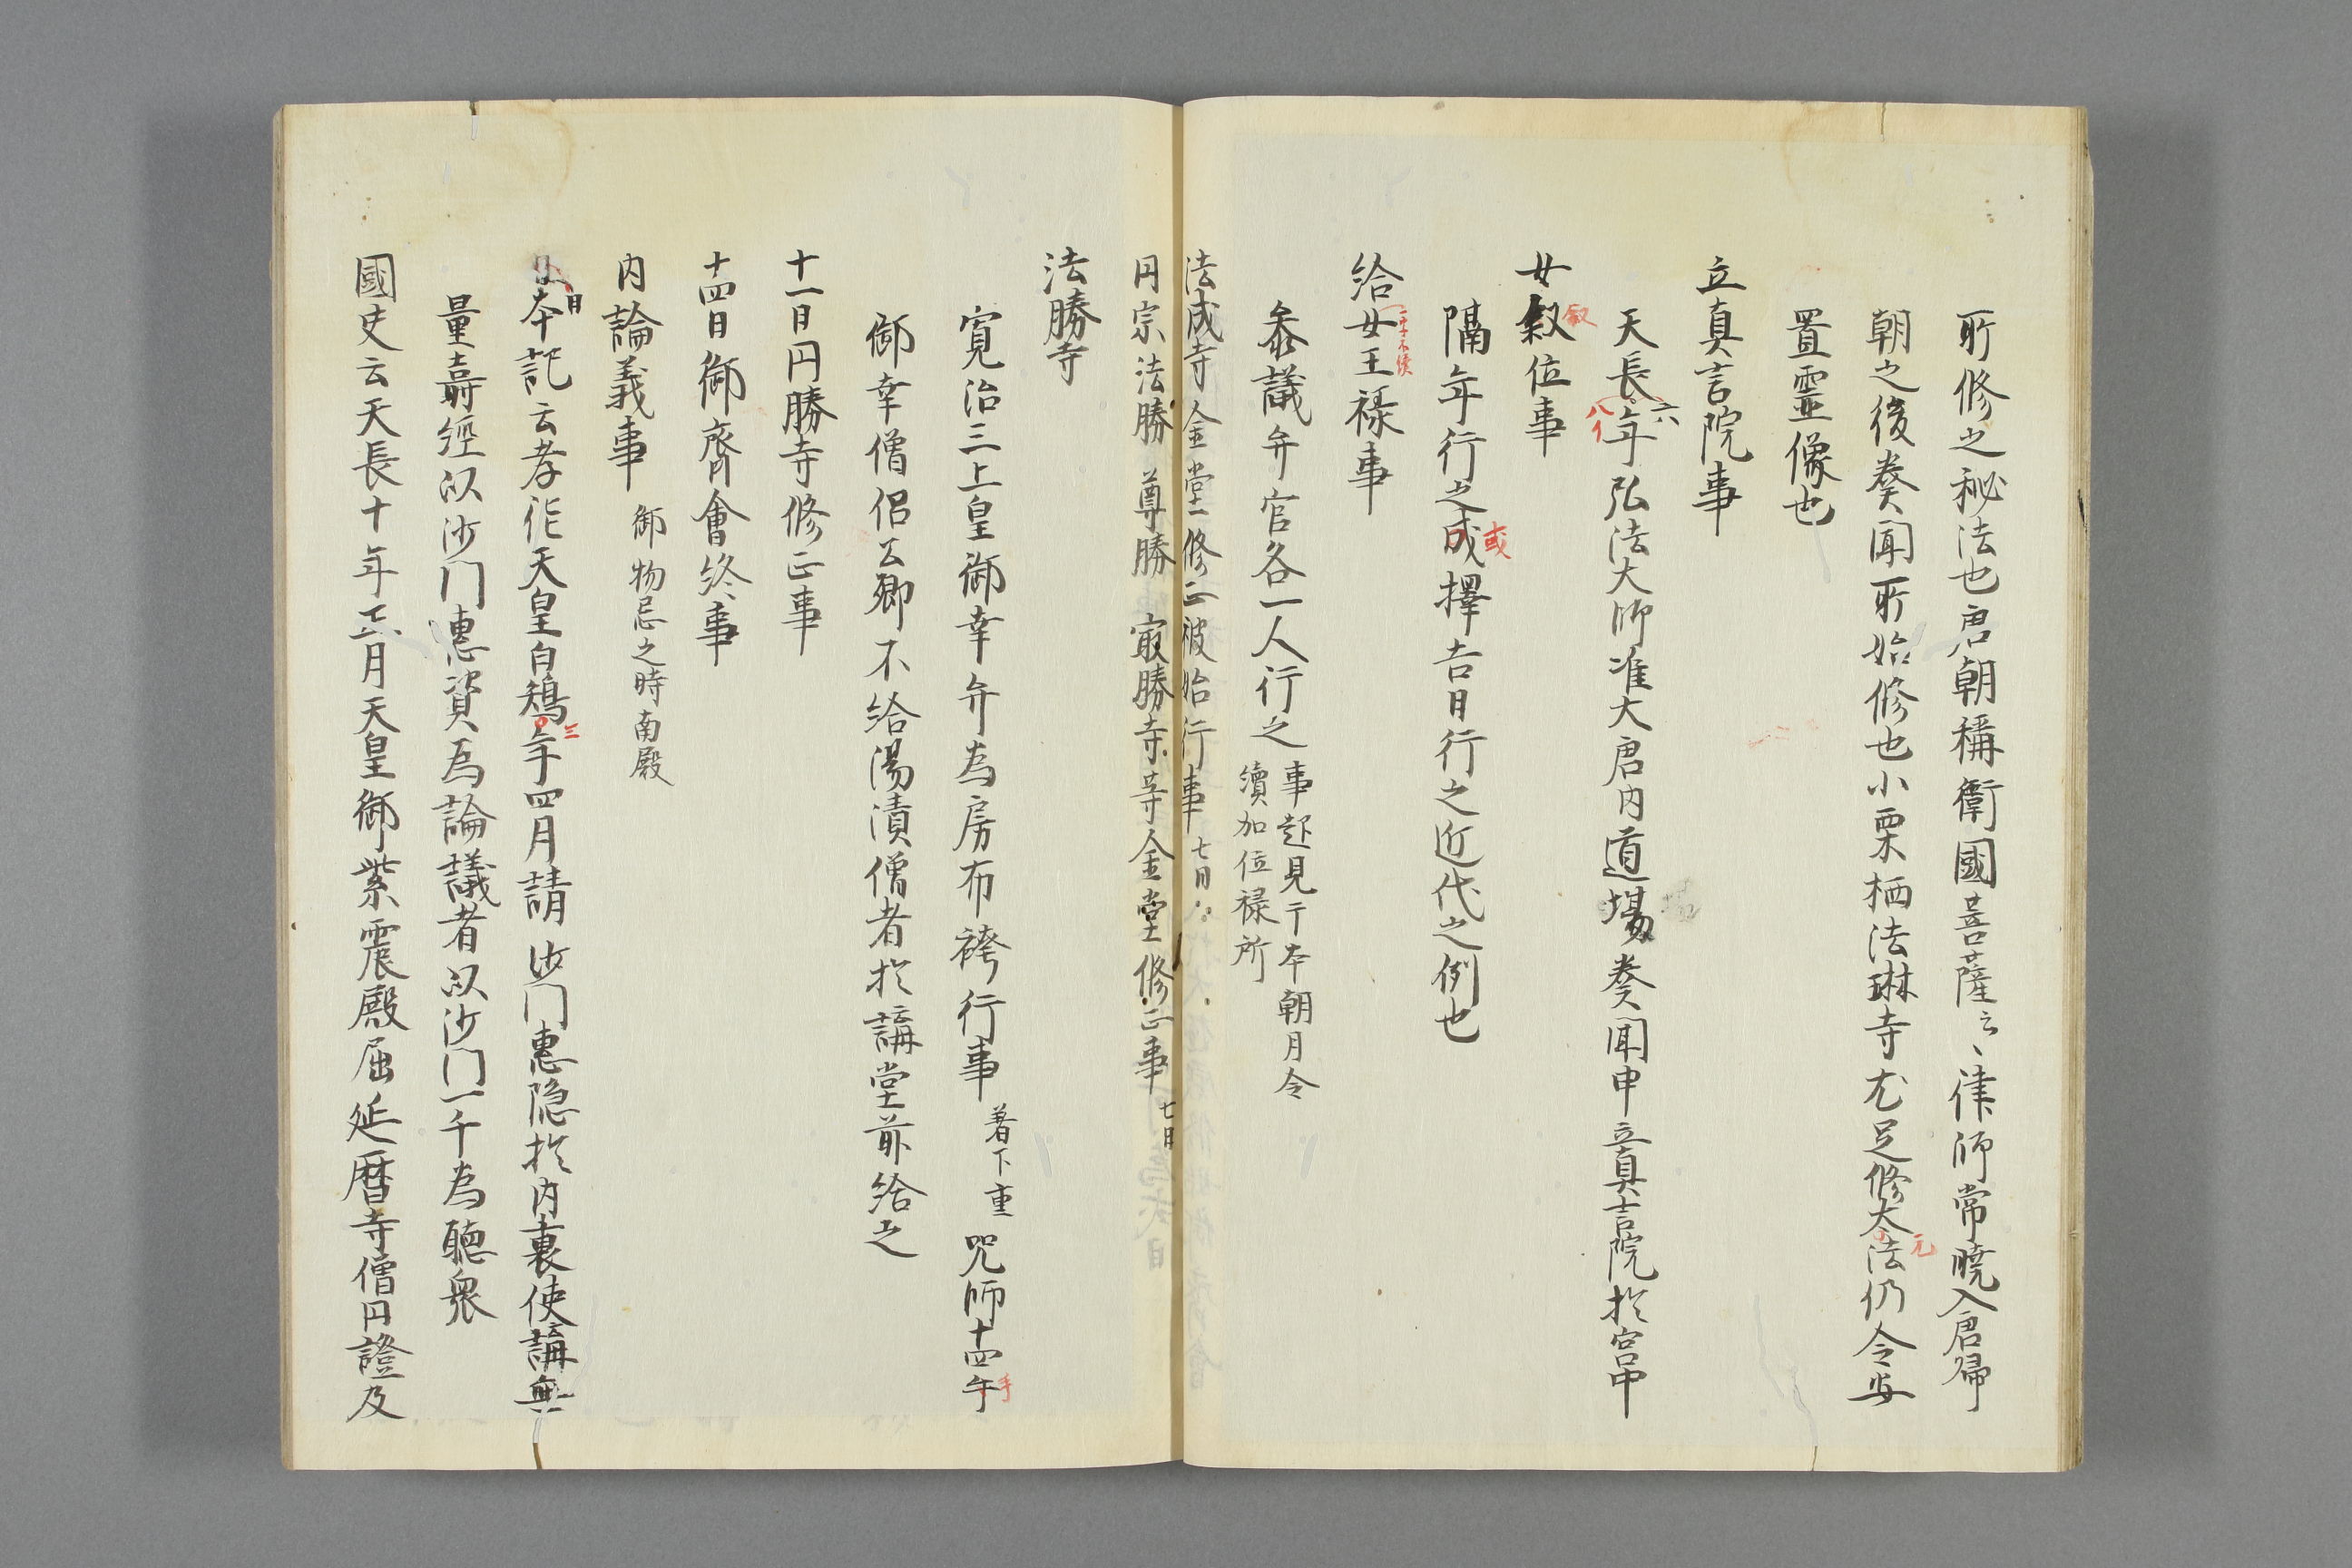 所修之秘法也唐朝稱衛國菩薩云〻律師常曉入唐歸
朝之後奏聞所始修也小栗栖法琳寺尤足修大法仍令安
元
置靈像也
立真言院事
天長六年弘法大師准大唐内道場奏聞申立真言院於宮中
八イ
女叙位事
叙
隔年行之成擇吉日行之近代之例也
或
給女王禄事
参議弁官各一人行之
事起見于本朝月令
續加位禄所
法成寺金堂修正被始行事 七日
円宗法勝尊勝最勝寺等金堂修正事 七日
法勝寺
寛治三上皇御幸弁為房布袴行事 著下重 咒師十四午
手
御幸僧侶公卿不給湯漬僧者於講堂前給之
十一日円勝寺修正事
十四日御齊會終事
内論義事 御物忌之時南殿
日本記云孝德天皇白雉年四月請沙門惠隠於内裏使講無
三
量壽經以沙門惠資為論議者以沙門一千為聴衆
國史云天長十年正月天皇御紫震殿屈延暦寺僧円證及